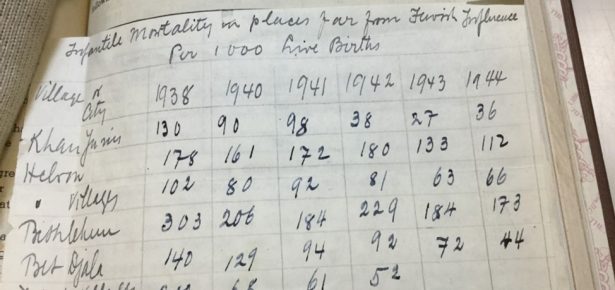 Infantile Mortality in places far from Jewish Influence
Per 1000 Live Births
Village or City 1938 1940 1941 1942 1943 1944
Khan Junis 130 90 98 38 27 36
Hebron 178 161 172 180 133 112
" Villages 102 80 92 81 63 66
Bethlehem 303 206 184 229 184 173
Bet Djala 140 129 94 92 72 44
68 61 52